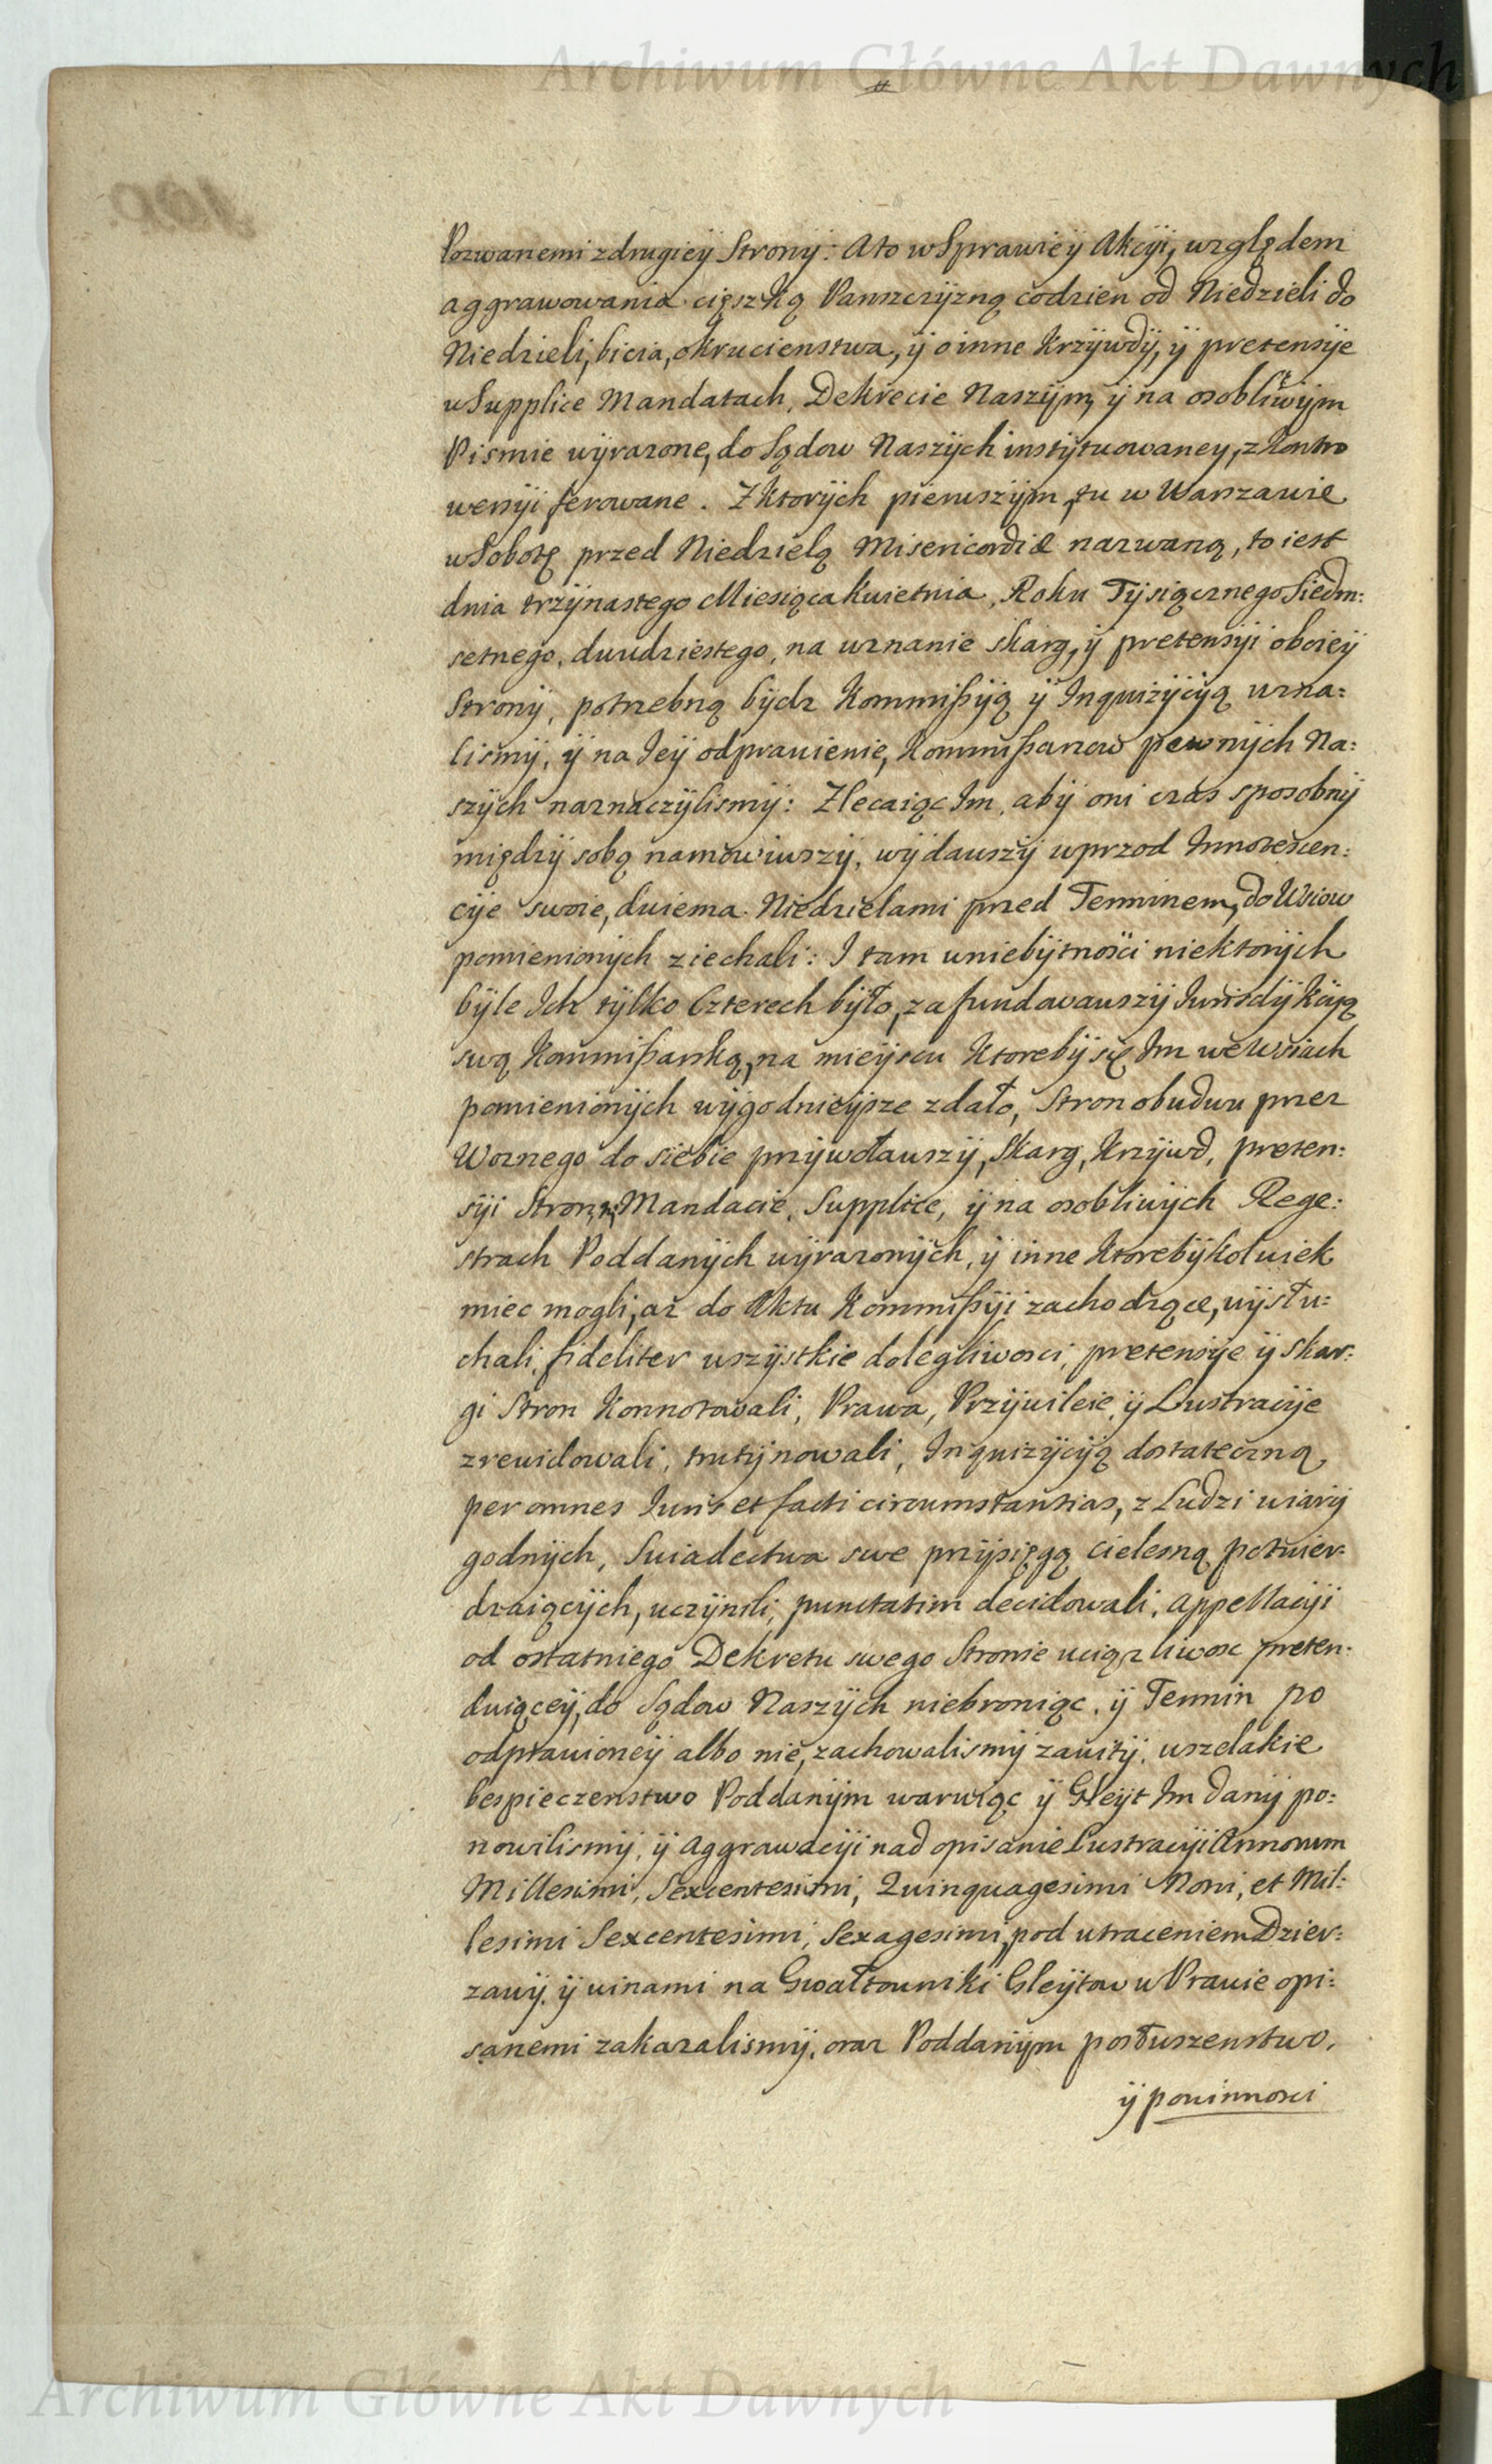 Archiwum Główne Akt Dawnych
Pozwanemi z drugieÿ Stronÿ: A to w Sprawie ÿ Akcÿi, względem
aggrawowania cięszką Panszczÿzną codzien od Niedzieli do
Niedzieli, bicia, okrucienstwa, ÿ o inne Krzÿwdÿ, ÿ pretensÿe
w Supplice Mandatach, Dekrecie Naszÿm, ÿ na osobliwÿm
Pismie wÿrazone, do Sądow Naszÿch instÿtuowaneÿ, z Kontro
wersÿi ferowane. Z Ktorÿch pierwszÿm, tu w Warszawie
w Sobotę przed Niedzielą Misericordiæ nazwaną, to iest
dnia trzÿnastego Miesiąca Kwietnia, Roku Tÿsiącznego Siedm:
setnego, dwudziestego, na uznanie skarg, ÿ pretensÿi oboieÿ
Stronÿ, potrzebną bÿdz Kommißÿą ÿ Inquizÿcÿą uzna:
lismÿ, ÿ na Ieÿ odprawienie, Kommißarzow pewnÿch Na:
szÿch naznaczÿlismÿ: Zlecaiąc Im, abÿ oni czas sposobnÿ
międzÿ sobą namowiwszÿ, wÿdawszÿ wprzod Innotescen:
cÿe swoie, dwiema Niedzielami przed Terminem, do Wsiow
pomienionÿch ziechali: I tam w niebÿtnosci niektorÿch
bÿle Ich tÿlko Czterech bÿło, zafundowawszÿ Iurisdÿkcÿą
swą Kommißarską, na mieÿscu Ktorebÿ się Im we Wsiach
pomienionÿch wÿgodnieÿsze zdało, Stron obudwu przez
Woznego do siebie przÿwoławszÿ, Skarg, Krzÿwd, preten:
sÿi Stron, w Mandacie, Supplice, ÿ na osobliwÿch Rege:
strach Poddanÿch wÿrazonÿch, ÿ inne Ktorebÿkolwiek
miec mogli, az do Aktu Kommißÿi zachodzące, wÿsłu:
chali, fideliter wszÿstkie dolegliwosci, pretensÿe ÿ Skar:
gi Stron Konnotowali, Prawa, Przÿwileie, ÿ Lustracÿe
zrewidowali, trutÿnowali, Inquizÿcÿą dostateczną
per omnes Iuris et facti circumstantias, z Ludzi wiarÿ
godnÿch, Swiadectwa swe przÿsięgą cielesną potwier:
dzaiącÿch, uczÿnili, punctatim decidowali, Appellacÿi
od ostatniego Dekretu swego Stronie uciązliwosc preten:
duiąceÿ, do Sądow Naszÿch niebroniąc, ÿ Termin po
odprawioneÿ albo nie, zachowalismÿ zawitÿ, wszelakie
bespieczenstwo Poddanÿm waruiąc ÿ Gleÿt Im danÿ po:
nowilismÿ, ÿ Aggrawacÿi nad opisanie Lustracÿi Annorum
Millesimi, Sexcentesimi, Quinquagesimi Noni, et Mil:
lesimi Sexcentesimi, Sexagesimi, pod utraceniem Dzier:
zawÿ, ÿ winami na Gwałtowniki Gleÿtow w Prawie opi:
sanemi zakazalismÿ, oraz Poddanÿm posłuszenstwo,
ÿ powinnosci
Archiwum Główne Akt Dawnych